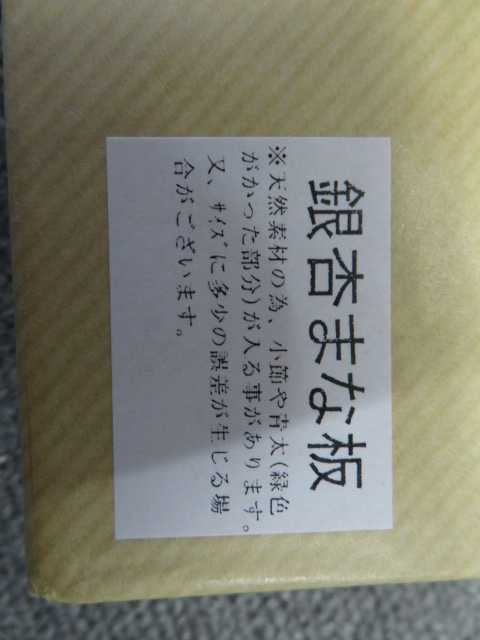 銀杏まな板
※天然素材の為、小節や青太(緑色
がかった部分)が入る事があります。
又、ｻｲｽﾞに多少の誤差が生じる場
合がございます。